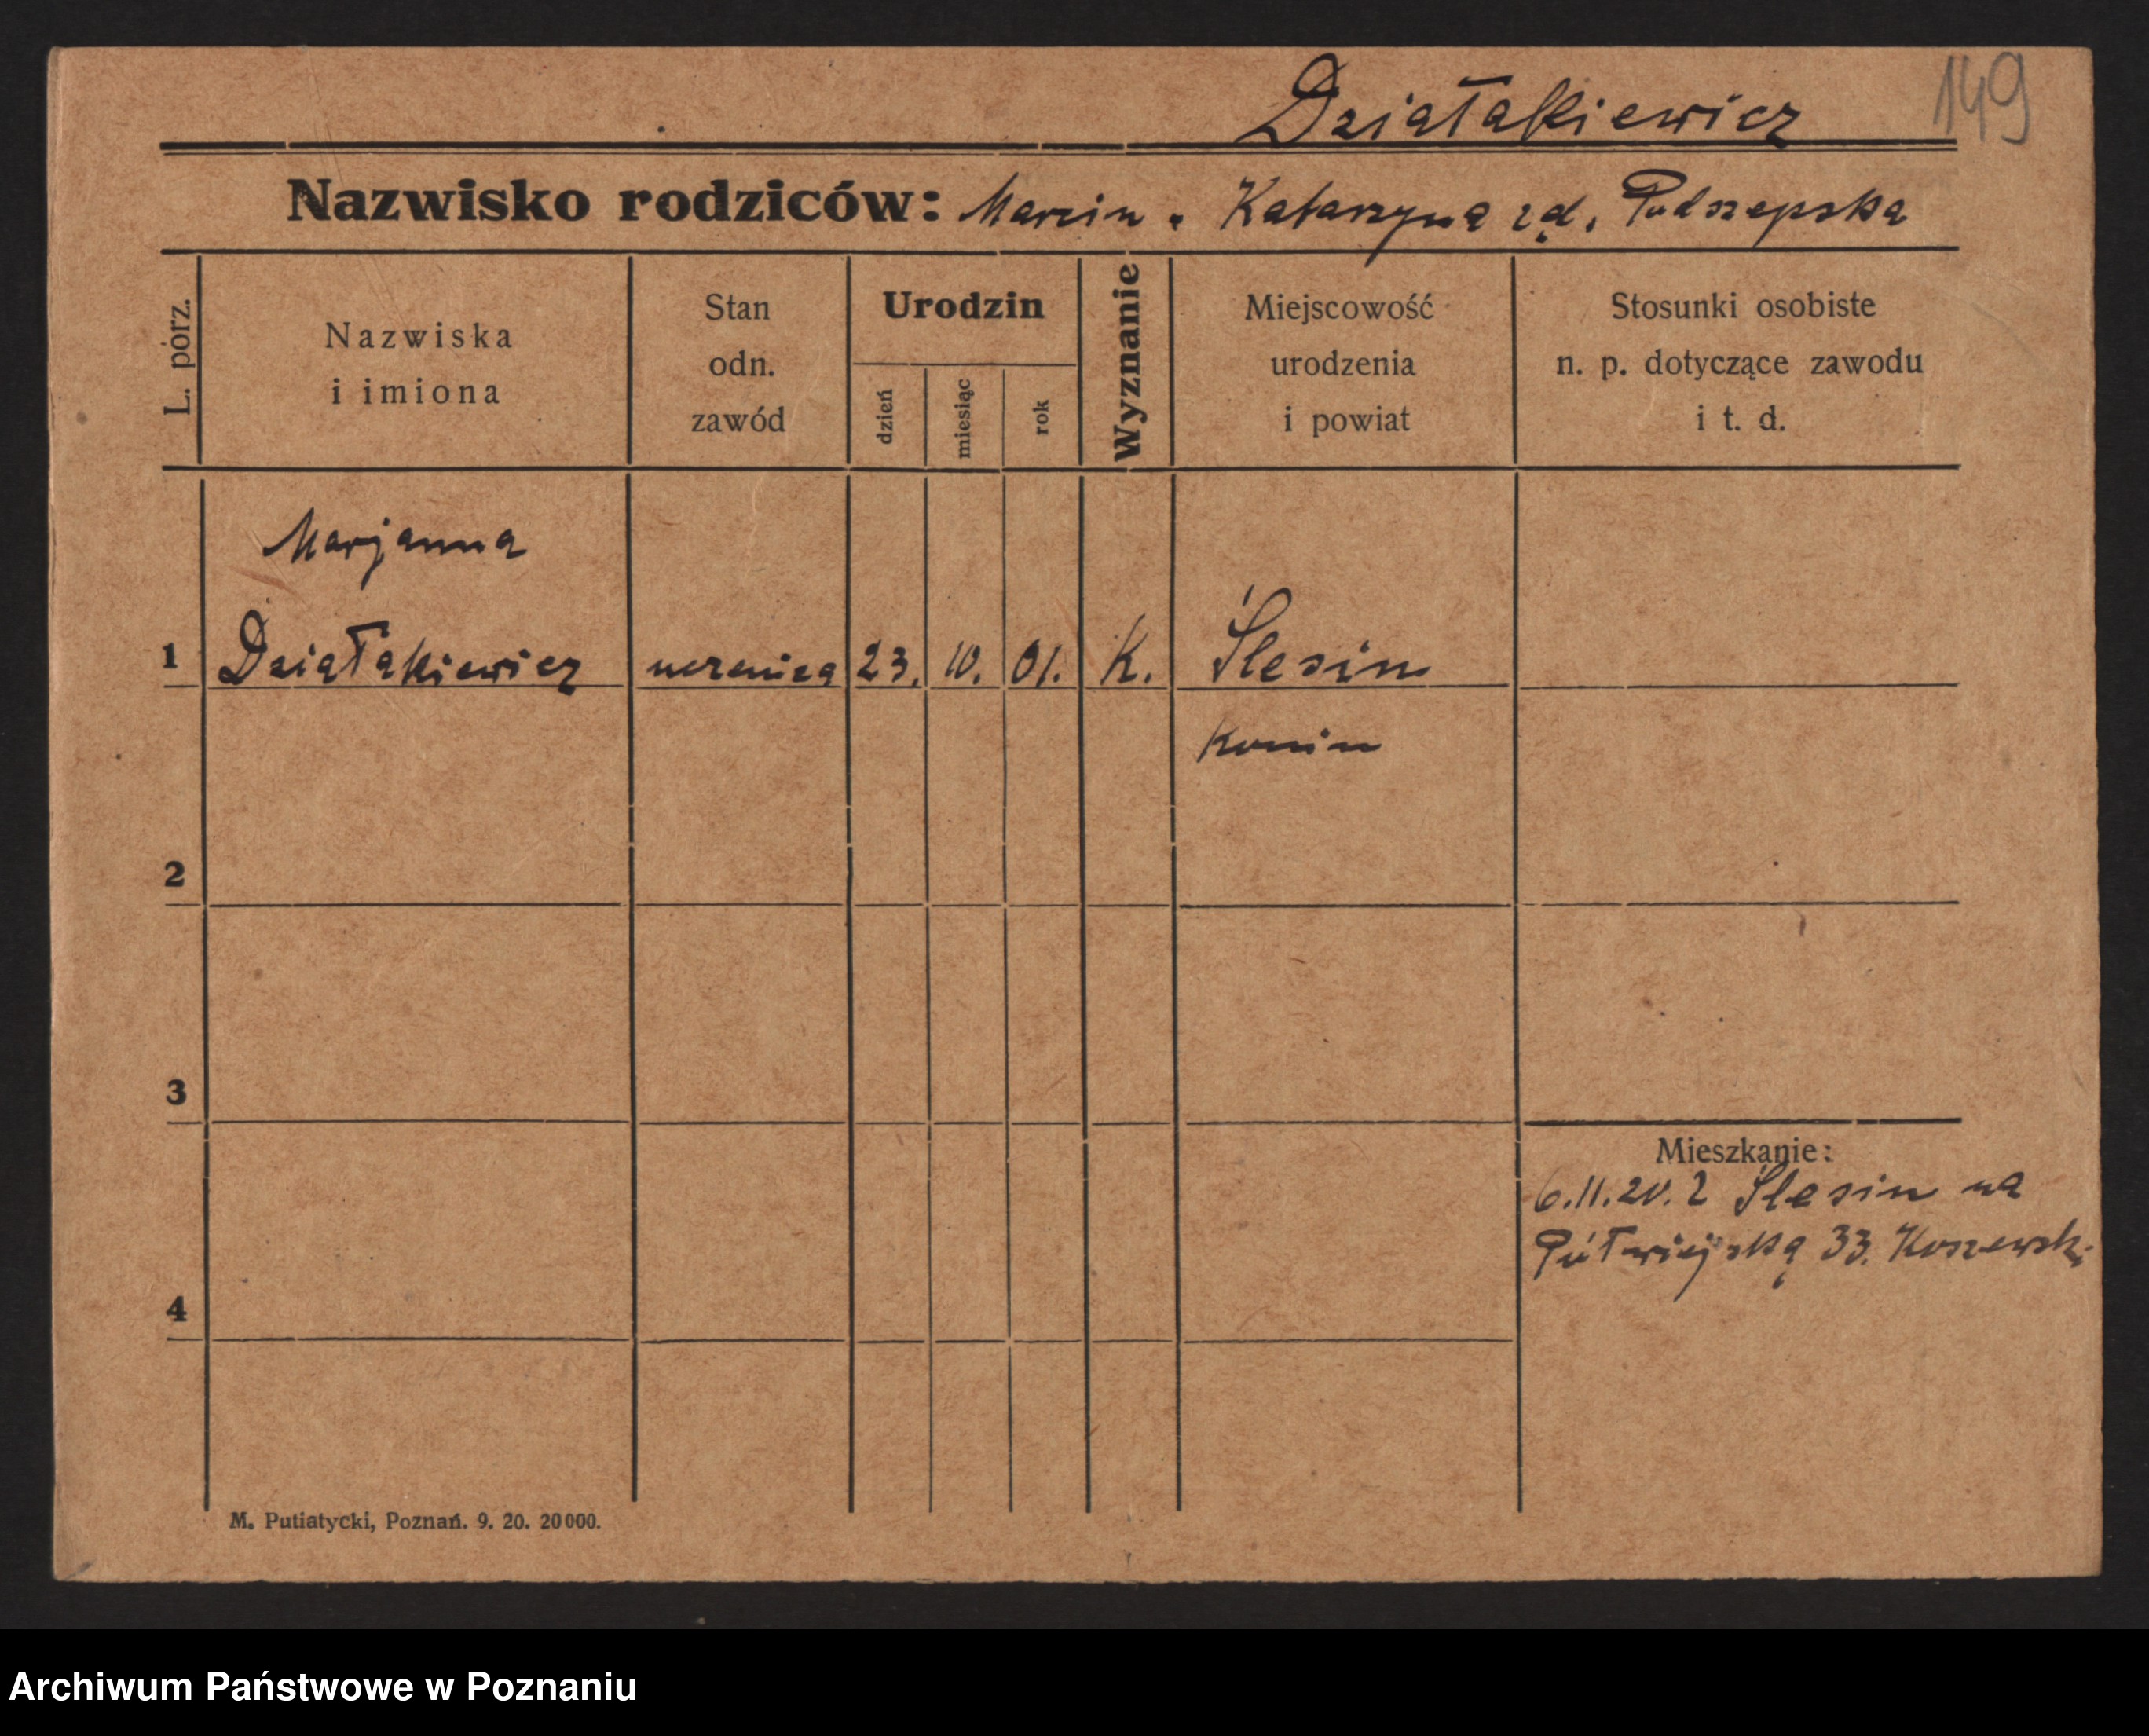 Działakiewicz 149
Nazwisko rodziców: Marcin . Katarzyna zd. Podszepska
L. porz.
Nazwiska
i imiona
Stan
odn.
zawód
Urodzin
dzień
miesiąc
rok
Wyznanie
Miejscowość
urodzenia
i powiat
Stosunki osobiste
n. p. dotyczące zawodu
i t. d.
Marjanna
1 Działakiewicz uczenica 23. 10. 01. K. Ślesin
Konin
2
3
Mieszkanie:
6.11.20. z Ślesin na
Półwiejską 33. Koszewski
4
M. Putiatycki, Poznań. 9. 20. 20 000.
Archiwum Państwowe w Poznaniu